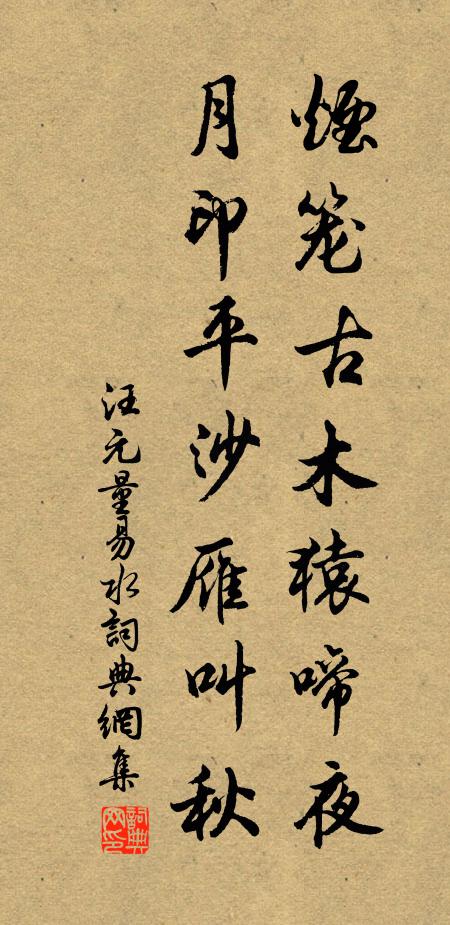 煙笼古木猿啼夜
月印平沙雁叫秋
汪元量易水詞典網集
詞典网印